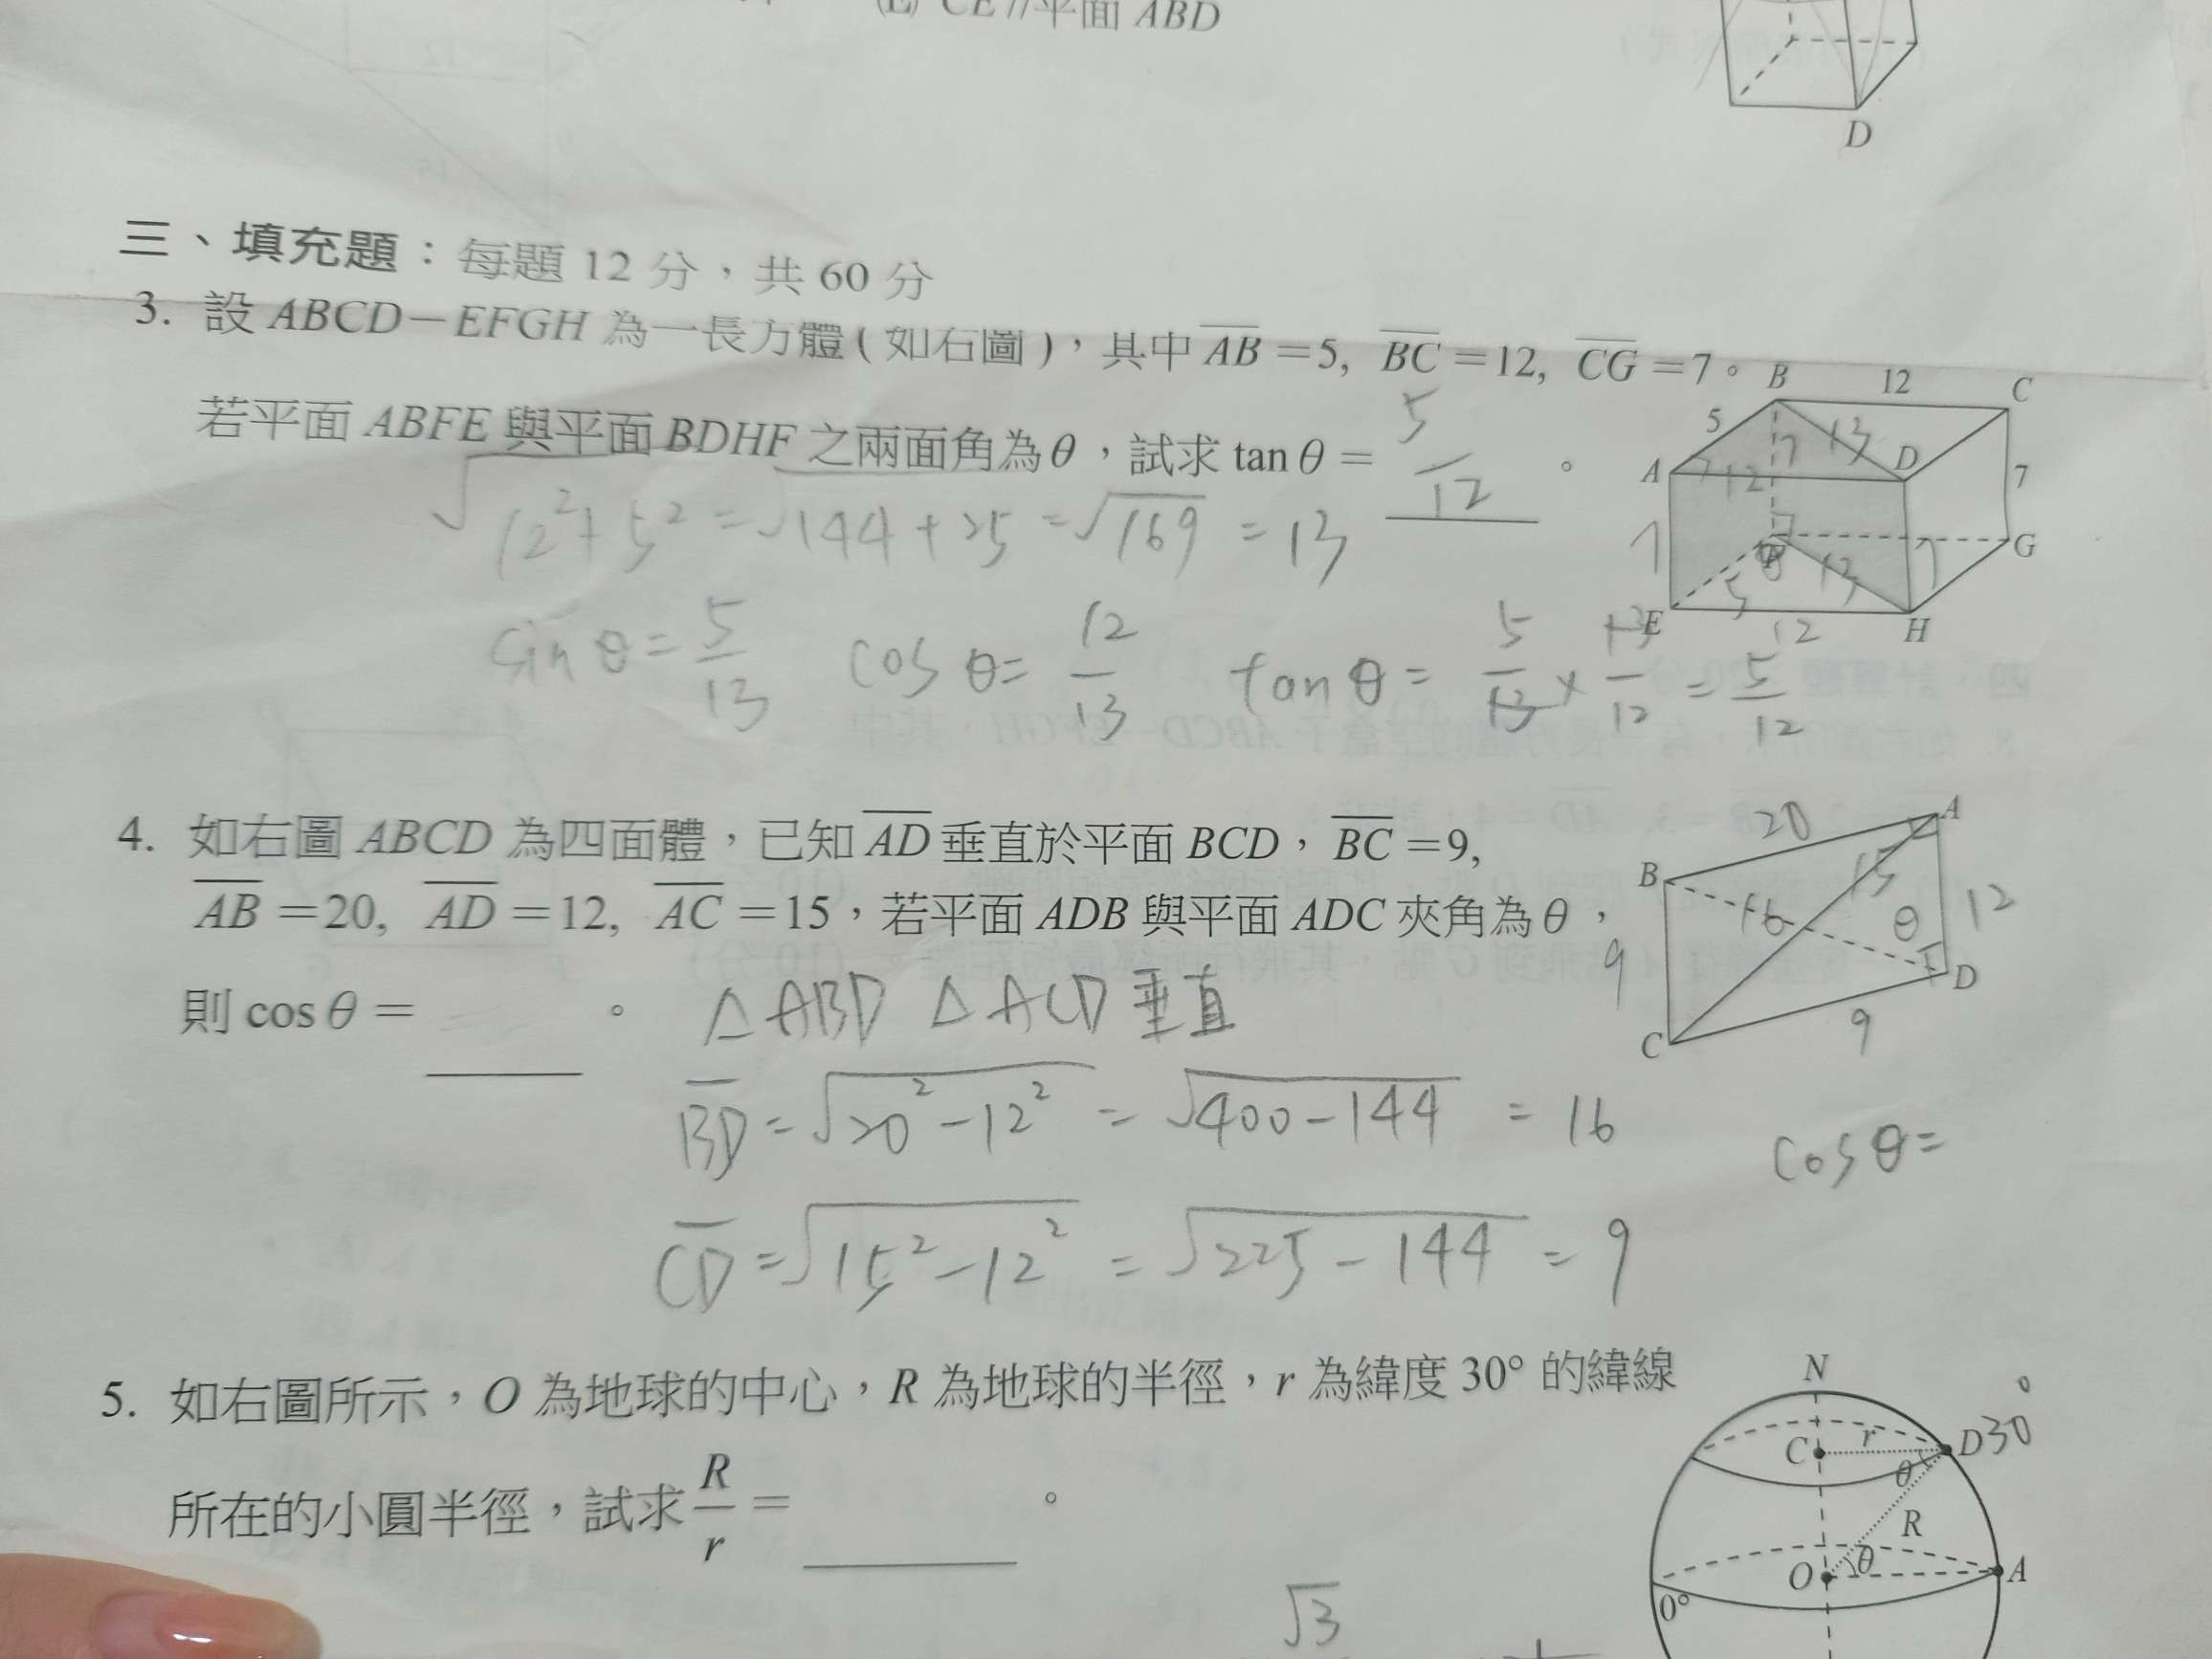 (E) CE // 平面 ABD
D
三、填充題：每題 12 分，共 60 分
3. 設 ABCD－EFGH 為一長方體 ( 如右圖 )，其中 AB =5, BC =12, CG =7。
若平面 ABFE 與平面 BDHF 之兩面角為θ，試求 tan θ = 5/12 。
√12²+5² = √144+25 = √169 = 13
sin θ = 5/13 cos θ = 12/13 tan θ = 5/13 × 13/12 = 5/12
B 12 C
5 13
A 12 7 D 7
7 G
5 θ 13 7
E 12 H
4. 如右圖 ABCD 為四面體，已知 AD 垂直於平面 BCD，BC =9,
AB =20, AD =12, AC =15，若平面 ADB 與平面 ADC 夾角為θ，
則 cos θ = 。 △ABD △ACD 垂直
BD = √20²-12² = √400-144 = 16
cos θ =
CD = √15²-12² = √225-144 = 9
20 A
B 16 15 θ 12
9 D
C 9
5. 如右圖所示，O 為地球的中心，R 為地球的半徑，r 為緯度 30° 的緯線
所在的小圓半徑，試求 R/r = 。
√3
N
C r D 30°
θ
R
O θ A
0°